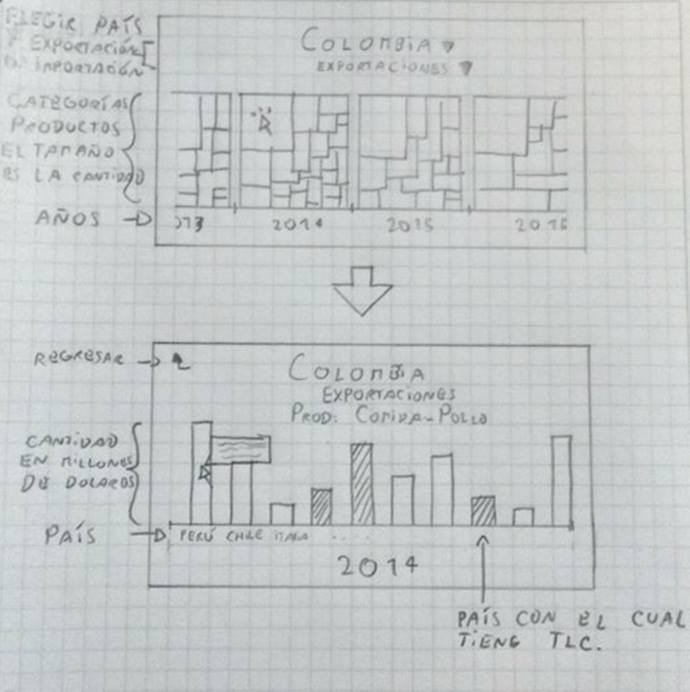 ELEGIR PAÍS
Y EXPORTACIÓN
O IMPORTACIÓN
COLOMBIA
EXPORTACIONES
CATEGORÍAS
PRODUCTOS
EL TAMAÑO
ES LA CANTIDAD
AÑOS
2014
2015
2016
REGRESAR
COLOMBIA
EXPORTACIONES
PROD: COMIDA-POLLO
CANTIDAD
EN MILLONES
DE DOLARES
PAÍS
PERÚ CHILE .....
2014
PAÍS CON EL CUAL
TIENE TLC.